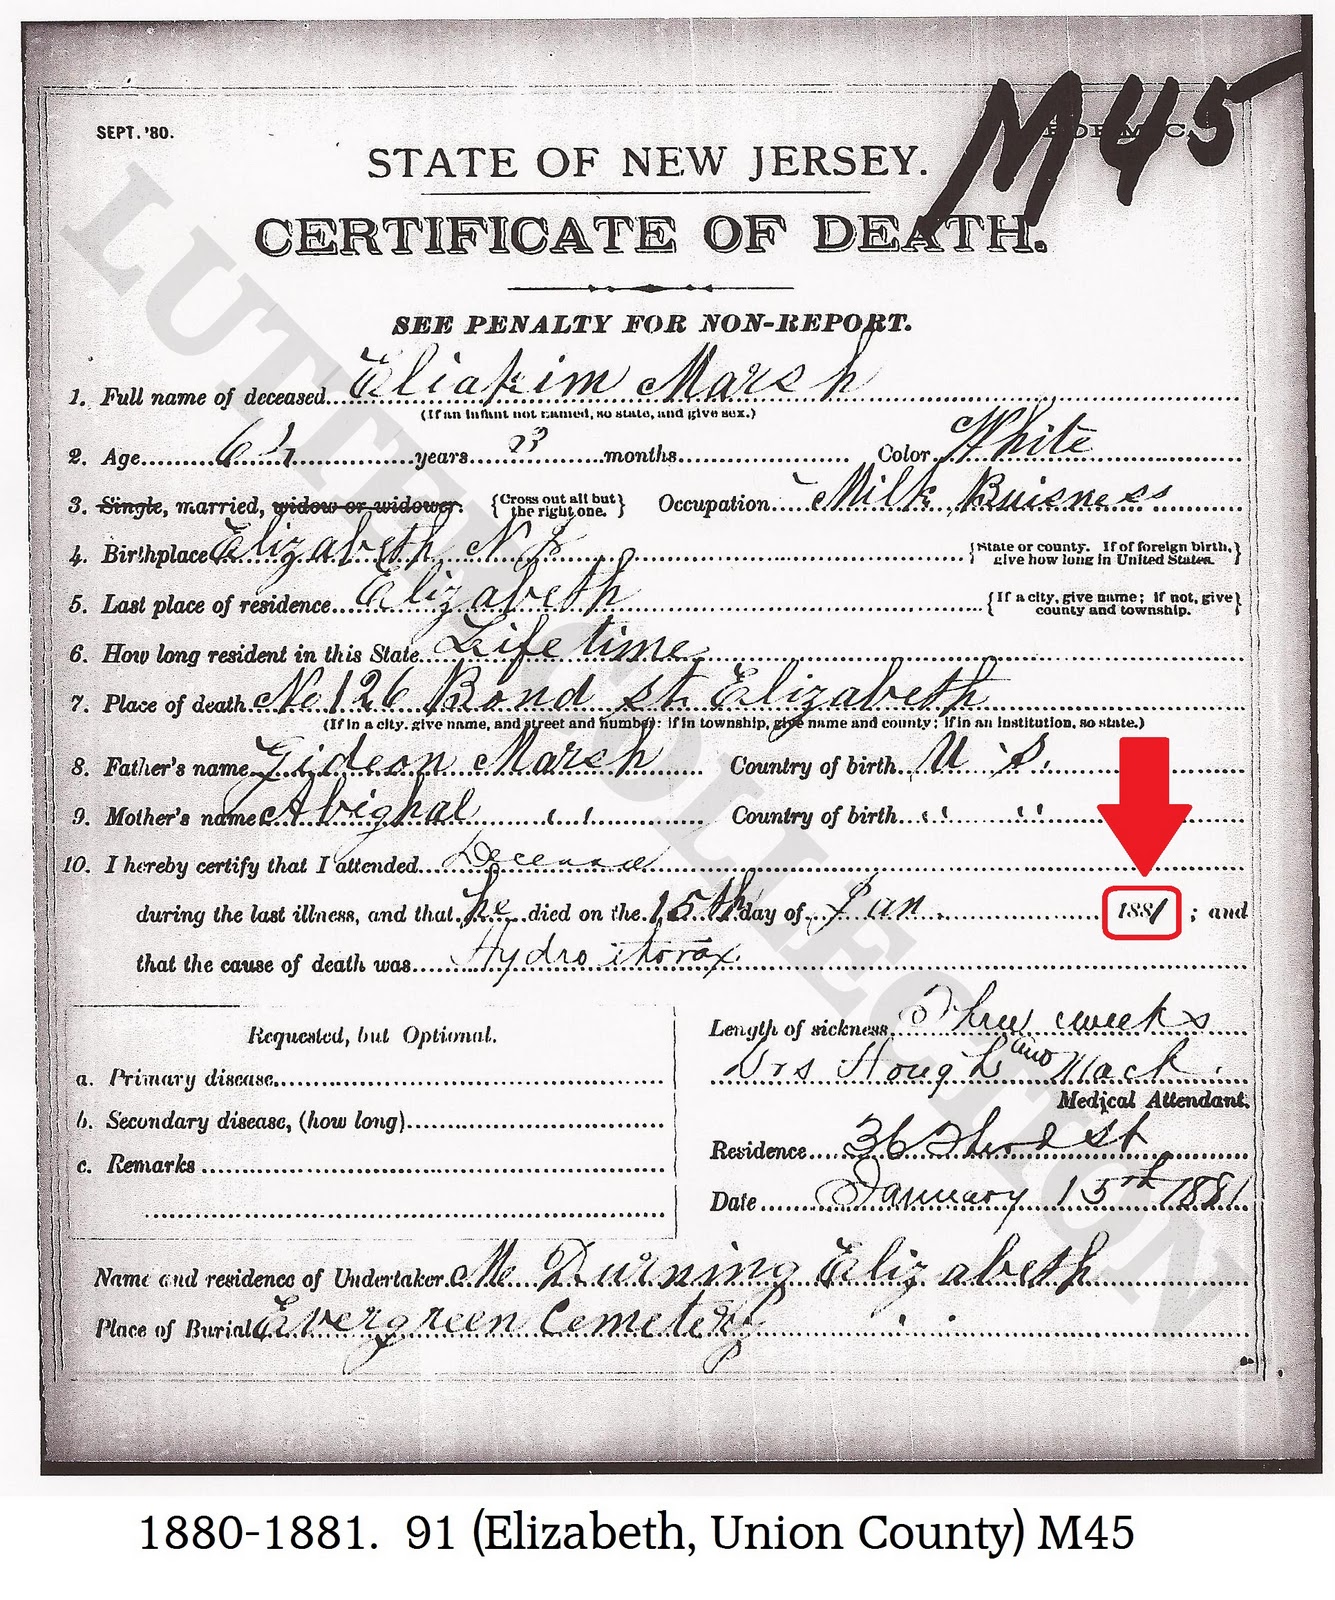 M45
SEPT. '80.
STATE OF NEW JERSEY.
CERTIFICATE OF DEATH.
SEE PENALTY FOR NON-REPORT.
1. Full name of deceased Eliakim Marsh
(If an infant not named, so state, and give sex.)
2. Age years 3 months Color White
3. Single, married, widow or widower. {Cross out all but the right one.} Occupation Milk Buisness
4. Birthplace Elizabeth N. J. {State or county. If of foreign birth, give how long in United States.}
5. Last place of residence Elizabeth {If a city, give name; if not, give county and township.}
6. How long resident in this State Life time
7. Place of death No 126 Bond st. Elizabeth
(If in a city, give name, and street and number: if in township, give name and county; if in an institution, so state.)
8. Father's name Gideon Marsh Country of birth U. S.
9. Mother's name Abighal " " Country of birth " "
10. I hereby certify that I attended Deceased
during the last illness, and that he died on the 15th day of Jan. 1881; and
that the cause of death was Hydro thorax
Requested, but Optional.
a. Primary disease
b. Secondary disease, (how long)
c. Remarks
Length of sickness Three weeks
Drs Hough and Mack.
Medical Attendant.
Residence 36 st
Date January 15th 1881
Name and residence of Undertaker Mc Durning Elizabeth
Place of Burial Evergreen Cemetery
LUTTER COLLECTION
1880-1881. 91 (Elizabeth, Union County) M45